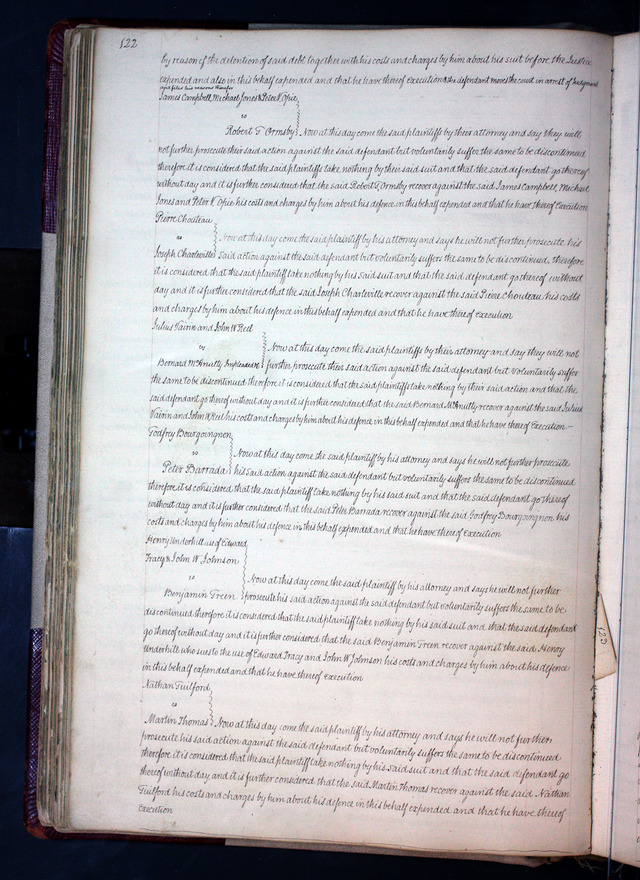 122
by reason of the detention of said debt together with his costs and charges by him about his suit before the Justice
expended and also in this behalf expended and that he have thereof execution & the defendant moves the court in arrest of Judgment
and files his reasons therefor
James Campbell, Michael Jones & Peter K Opie
vs
Robert T Ormsby Now at this day come the said plaintiffs by their attorney and say they will
not further prosecute their said action against the said defendant but voluntarily suffer the same to be discontinued
therefore it is considered that the said plaintiffs take nothing by their said suit and that the said defendant go thereof
without day and it is further considered that the said Robert T Ormsby recover against the said James Campbell, Michael
Jones and Peter K Opie his costs and charges by him about his defence in this behalf expended and that he have thereof Execution
Pierre Chouteau
vs
Joseph Charleville Now at this day come the said plaintiff by his attorney and says he will not further prosecute his
said action against the said defendant but voluntarily suffers the same to be discontinued, therefore
it is considered that the said plaintiff take nothing by his said suit and that the said defendant go thereof without
day and it is further considered that the said Joseph Charleville recover against the said Pierre Chouteau his costs
and charges by him about his defence in this behalf expended and that he have thereof execution
Julius Vairin and John W Reel
vs
Now at this day come the said plaintiffs by their attorney and say they will not
Bernard McAnulty Impleaded &c further prosecute their said action against the said defendant but voluntarily suffer
the same to be discontinued therefore it is considered that the said plaintiffs take nothing by their said action and that the
said defendant go thereof without day and it is further considered that the said Bernard McAnulty recover against the said Julius
Vairin and John W Reel his costs and charges by him about his defence in this behalf expended and that he have thereof Execution —
Godfroy Bourgoingnon
vs
Now at this day come the said plaintiff by his attorney and says he will not further prosecute
Peter Barrada his said action against the said defendant but voluntarily suffers the same to be discontinued
therefore it is considered that the said plaintiff take nothing by his said suit and that the said defendant go thereof
without day and it is further considered that the said Peter Barrada recover against the said Godfroy Bourgoingnon his
costs and charges by him about his defence in this behalf expended and that he have thereof execution
Henry Underhill use of Edward
Tracy & John W Johnson
vs
Now at this day come the said plaintiff by his attorney and says he will not further
Benjamin Freen prosecute his said action against the said defendant but voluntarily suffers the same to be
discontinued therefore it is considered that the said plaintiff take nothing by his said suit and that the said defendant
go thereof without day and it is further considered that the said Benjamin Freen recover against the said Henry
Underhill who sues to the use of Edward Tracy and John W Johnson his costs and charges by him about his defence
in this behalf expended and that he have thereof execution
Nathan Tuilford
vs
Martin Thomas Now at this day come the said plaintiff by his attorney and says he will not further
prosecute his said action against the said defendant but voluntarily suffers the same to be discontinued
therefore it is considered that the said plaintiff take nothing by his said suit and that the said defendant go
thereof without day and it is further considered that the said Martin Thomas recover against the said Nathan
Tuilford his costs and charges by him about his defence in this behalf expended and that he have thereof
Execution